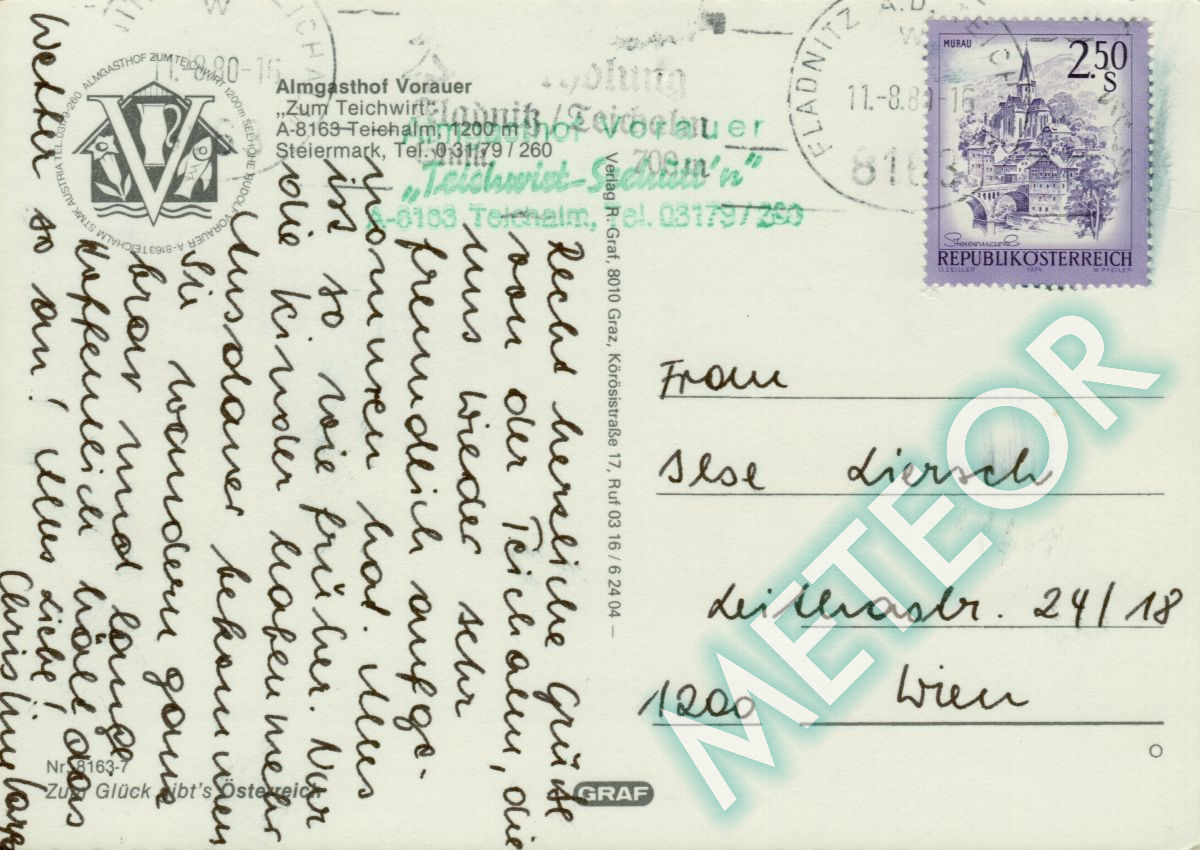 Almgasthof Vorauer
„Zum Teichwirt“
A-8163 Teichalm, 1200 m
Steiermark, Tel. 0 31 79 / 260
ALMGASTHOF ZUM TEICHWIRT 1200m SEEHÖHE RUDOLF VORAUER A-8163 TEICHALM STMK AUSTRIA TEL 03179-260
V
Almgasthof Vorauer
„Teichwirt-Schütt'n“
A-8163 Teichalm, Tel. 03179/260
Fladnitz/Teichalm
700 m
11.-8.80-16
FLADNITZ A.D. TEICHALM
11.-8.80-16
8163
MURAU
2.50
S
Steiermark
REPUBLIK ÖSTERREICH
O. ZEILLER 1974 W. PFEILER
Recht herzliche Grüße
von der Teichalm, die
uns wieder sehr
freundlich aufge-
nommen hat. Alles
ist so wie früher. Nur
die Kinder haben mehr
Ausdauer bekommen
Sie wandern ganz
brav und lange,
Hoffentlich hält das
Wetter so an! Alles Liebe!
Christine
Verlag R. Graf, 8010 Graz, Körösistraße 17, Ruf 03 16 / 6 24 04 –
Frau
Ilse Liersch
Leithastr. 24/18
1200 Wien
Nr. 8163-7
Zum Glück gibt's Österreich
GRAF
METEOR